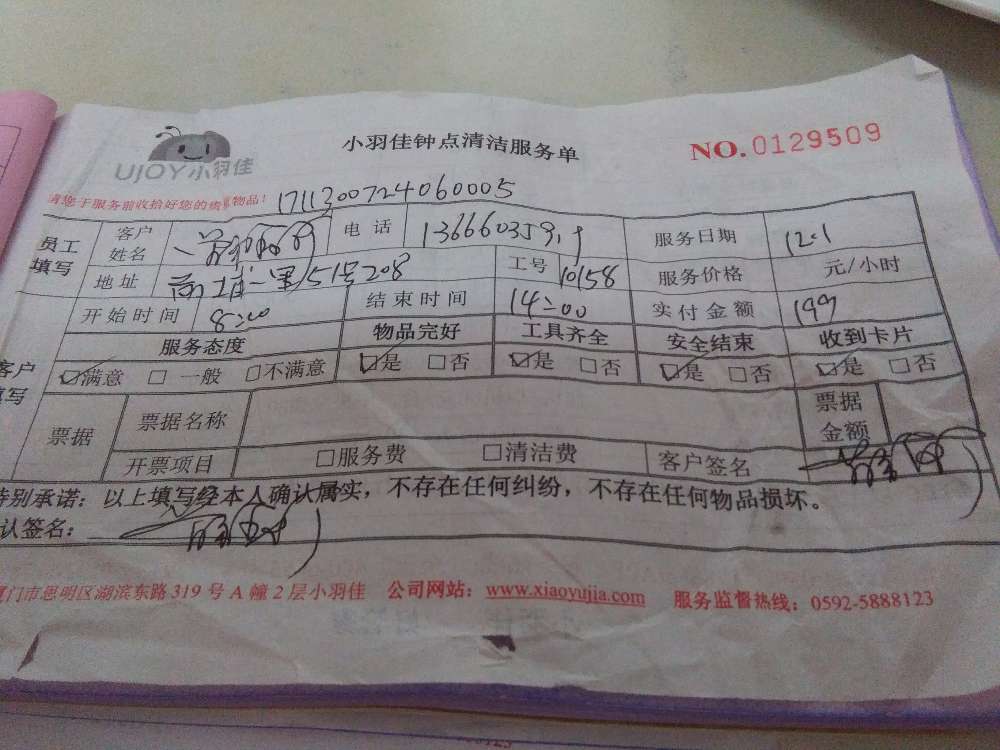 UJOY小羽佳
小羽佳钟点清洁服务单
NO.0129509
请您于服务前收拾好您的 物品！ 1711300724060005
员工填写 客户姓名 电话 服务日期 12.1
地址 51号208 工号 10158 服务价格 元/小时
开始时间 8:00 结束时间 14:00 实付金额 199
服务态度 物品完好 工具齐全 安全结束 收到卡片
客户填写 ☑满意 □一般 □不满意 ☑是 □否 ☑是 □否 ☑是 □否 ☑是 □否
票据 票据名称 票据金额
开票项目 □服务费 □清洁费 客户签名
特别承诺：以上填写经本人确认属实，不存在任何纠纷，不存在任何物品损坏。
认签名：
厦门市思明区湖滨东路319号A幢2层小羽佳 公司网站：www.xiaoyujia.com 服务监督热线：0592-5888123